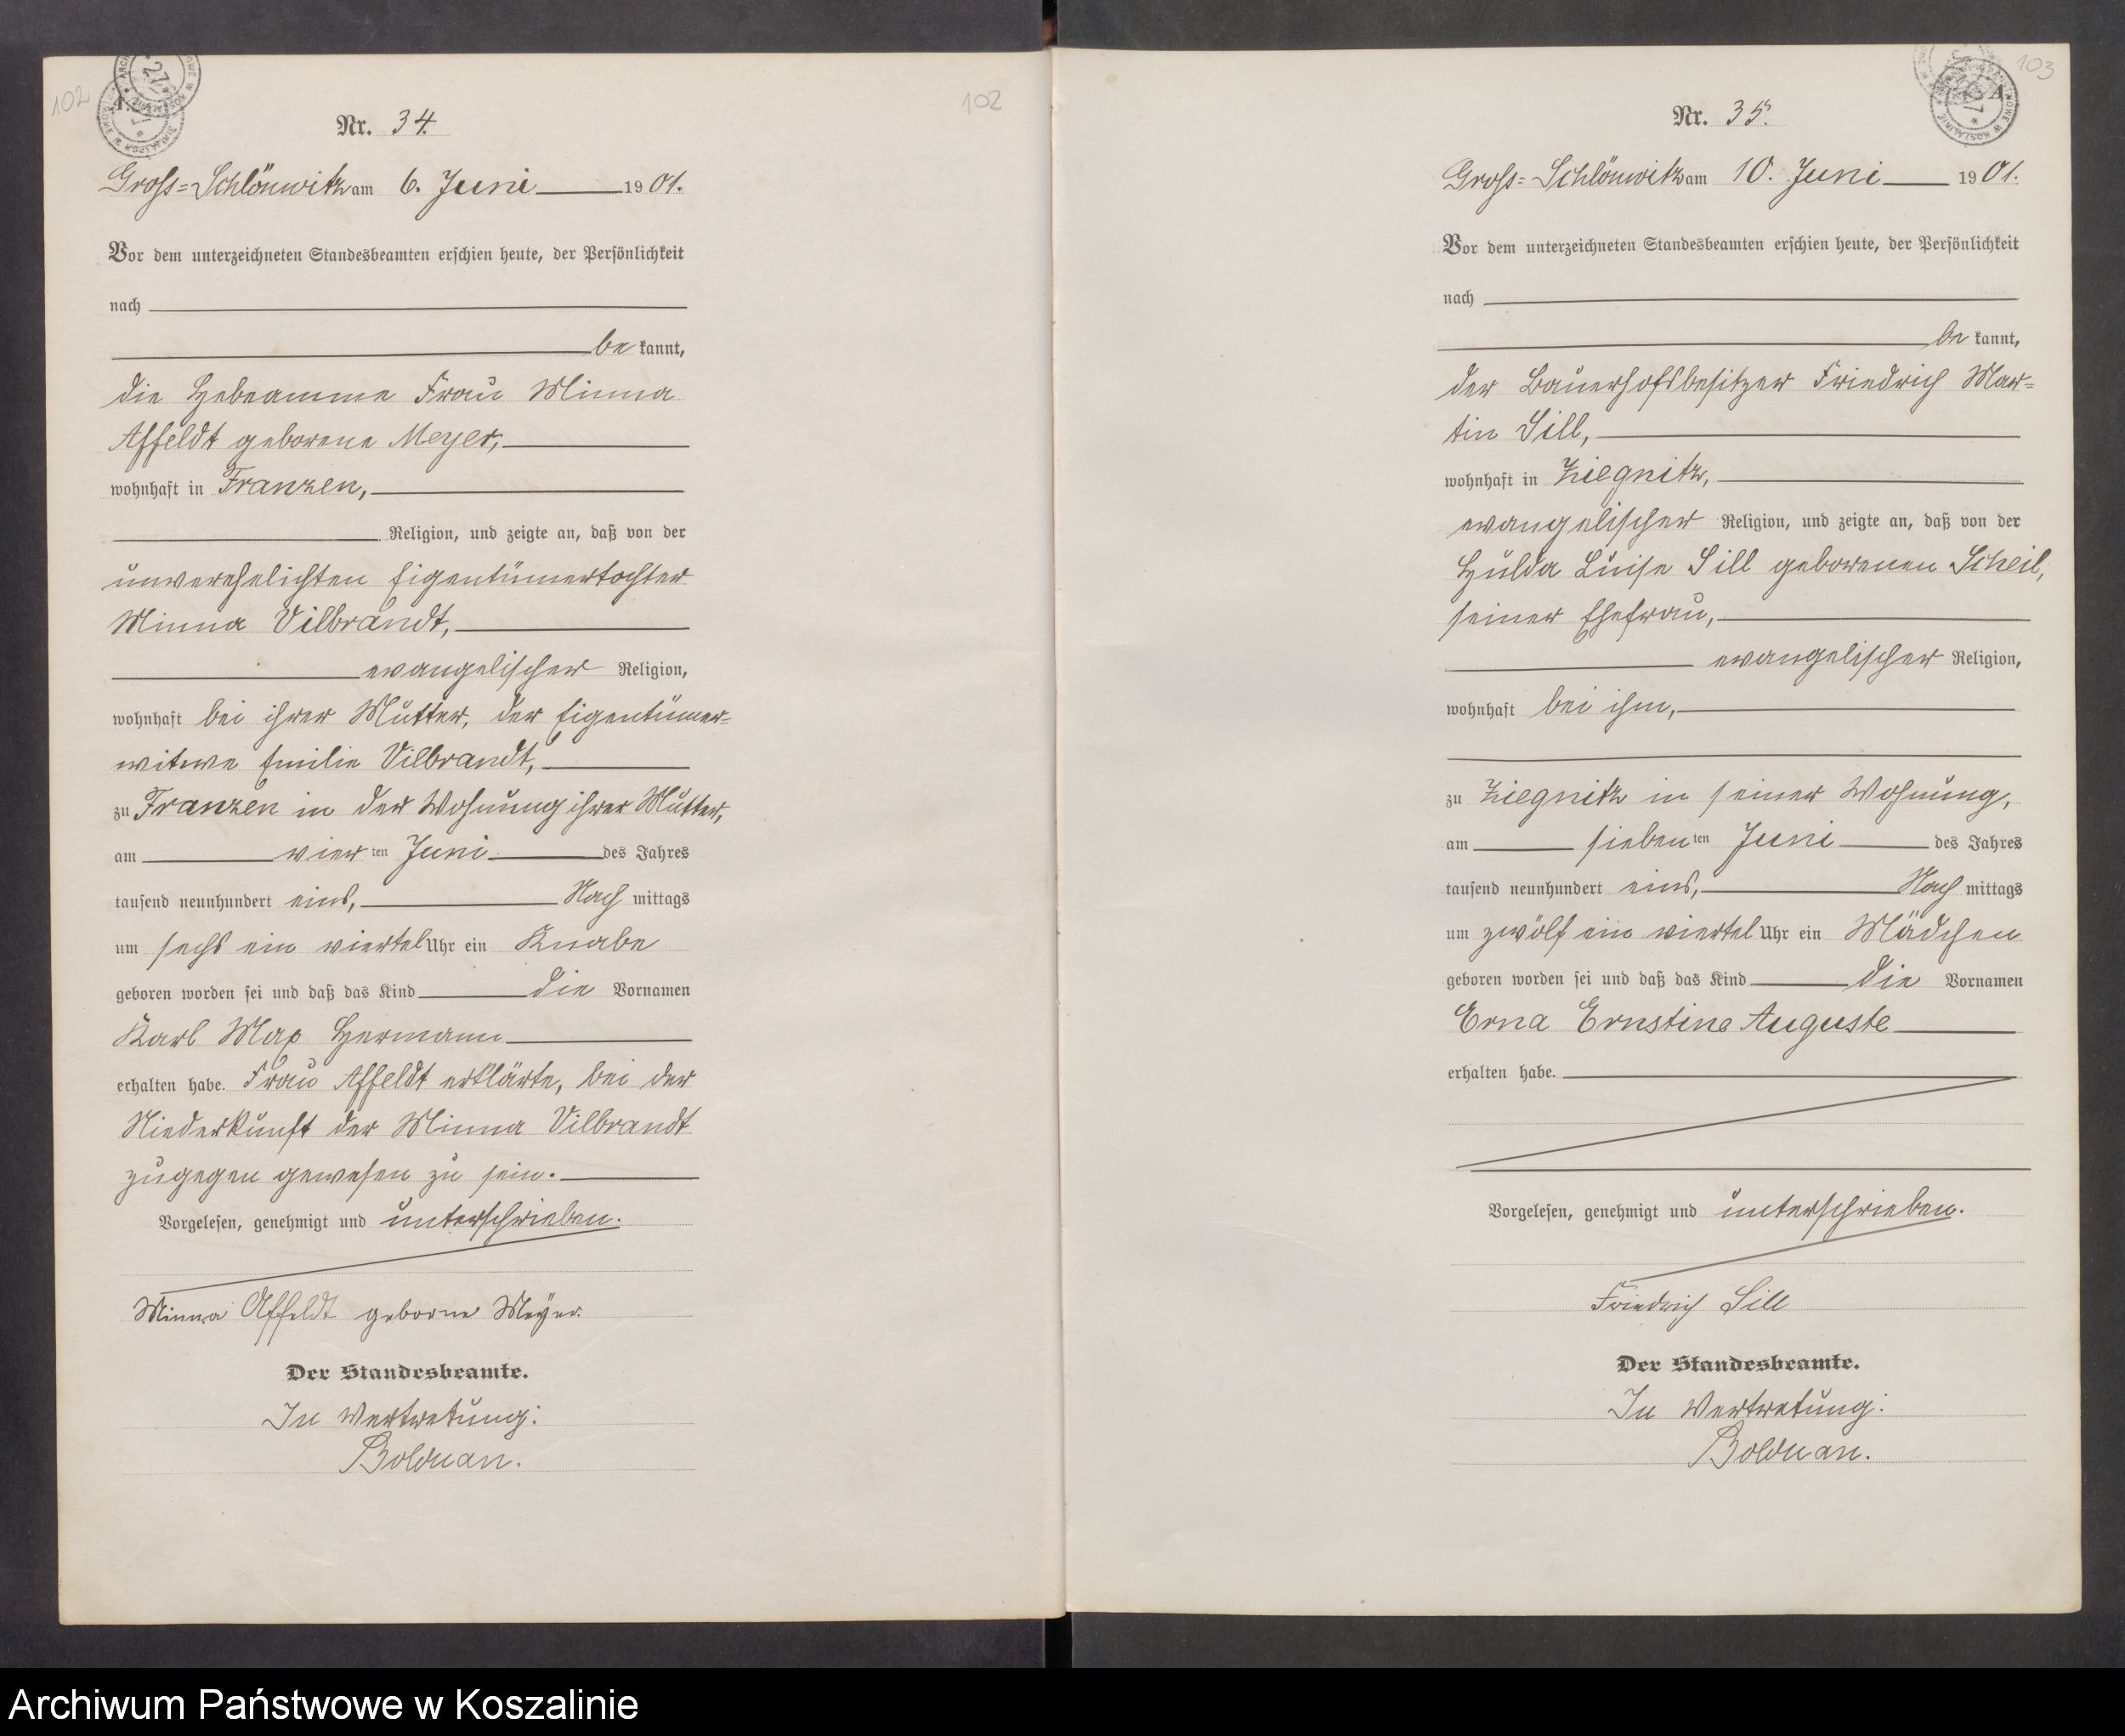 102
A.
Nr. 34.
Gross=Schlönwitz am 6. Juni 1901.
Vor dem unterzeichneten Standesbeamten erschien heute, der Persönlichkeit
nach
be kannt,
die Hebeamme Frau Minna
Affeldt geborene Meyer,
wohnhaft in Franzen,
Religion, und zeigte an, daß von der
unverehelichten Eigentümertochter
Minna Vilbrandt,
evangelischer Religion,
wohnhaft bei ihrer Mutter, der Eigentümer=
witwe Emilie Vilbrandt,
zu Franzen in der Wohnung ihrer Mutter,
am vier ten Juni des Jahres
tausend neunhundert eins, Nach mittags
um sechs ein viertel Uhr ein Knabe
geboren worden sei und daß das Kind die Vornamen
Karl Max Hermann
erhalten habe. Frau Affeldt erklärte, bei der
Niederkunft der Minna Vilbrandt
zugegen gewesen zu sein.
Vorgelesen, genehmigt und unterschrieben.
Minna Affeldt geborne Meyer.
Der Standesbeamte.
In Vertretung:
Bolduan.
102
103
A
Nr. 35.
Gross=Schlönwitz am 10. Juni 1901.
Vor dem unterzeichneten Standesbeamten erschien heute, der Persönlichkeit
nach
be kannt,
der Bauerhofsbesitzer Friedrich Mar=
tin Sill,
wohnhaft in Ziegnitz,
evangelischer Religion, und zeigte an, daß von der
Hulda Luise Sill geborenen Scheil,
seiner Ehefrau,
evangelischer Religion,
wohnhaft bei ihm,
zu Ziegnitz in seiner Wohnung,
am sieben ten Juni des Jahres
tausend neunhundert eins, Nach mittags
um zwölf ein viertel Uhr ein Mädchen
geboren worden sei und daß das Kind die Vornamen
Erna Ernstine Auguste
erhalten habe.
Vorgelesen, genehmigt und unterschrieben.
Friedrich Sill
Der Standesbeamte.
In Vertretung:
Bolduan.
Archiwum Państwowe w Koszalinie